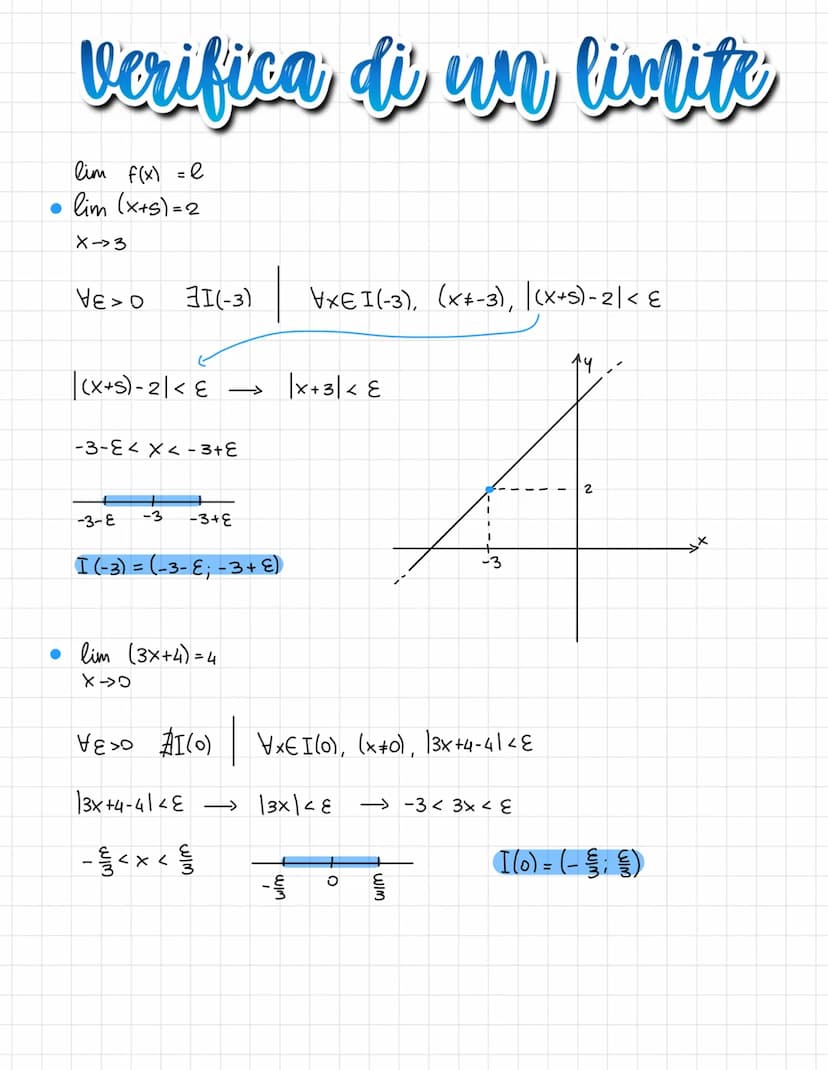 Verifica di un limite
lim f(x) = l
• lim (x+5) = 2
x→3
∀ε > 0 ∃I(-3) | ∀x∈I(-3), (x≠-3), |(x+5)-2| < ε
|(x+5)-2| < ε → |x+3| < ε
-3-ε < x < -3+ε
-3-ε -3 -3+ε
I(-3) = (-3-ε; -3+ε)
y
2
x
-3
• lim (3x+4) = 4
x→0
∀ε>0 ∄I(0) | ∀x∈I(0), (x≠0), |3x+4-4| < ε
|3x+4-4| < ε → |3x| < ε → -3 < 3x < ε
-ε/3 < x < ε/3
-ε/3 0 ε/3
I(0) = (-ε/3; ε/3)